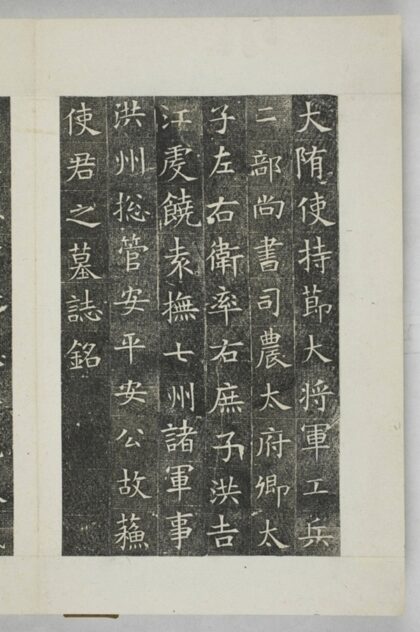 大隋使持莭大将軍工兵
二部尚書司農太府卿太
子左右衛率右庶子洪吉
江虔饒袁撫七州諸軍事
洪州捴管安平安公故蘓
使君之墓誌銘